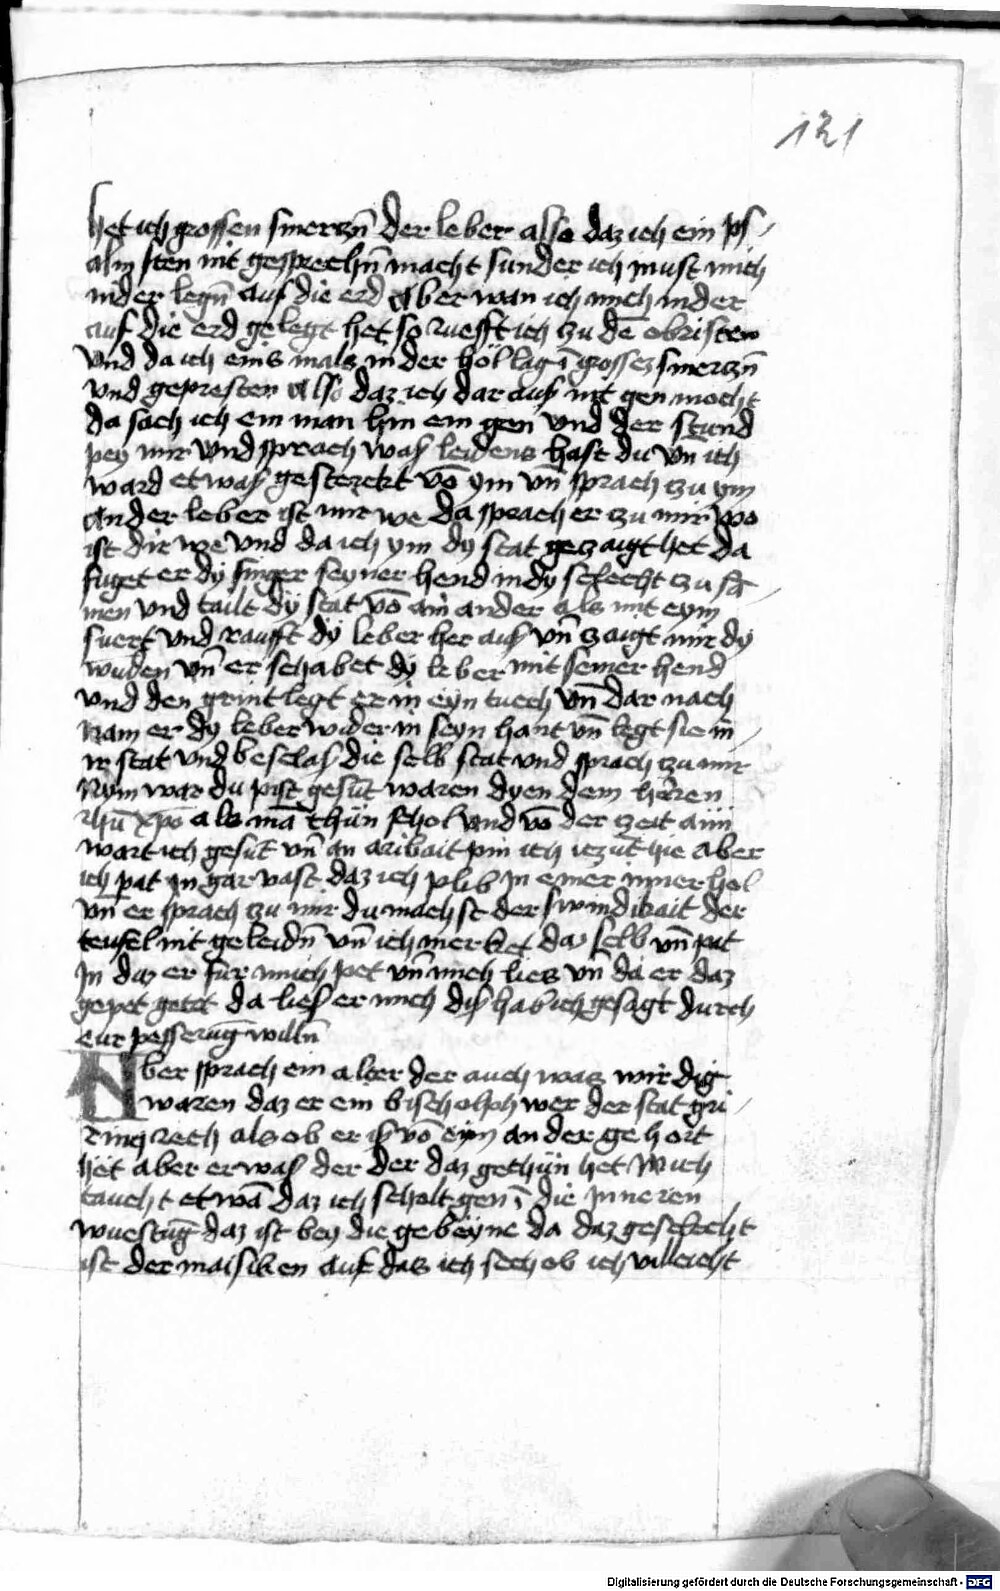 121
het ich grossen smerczn̄ der leber also daz ich ein ps⸗
alm sten nit gesprechn̄ macht sunder ich must mich
nider legn̄ auf die erd Aber wan ich mich nider
auf die erd gelegt het so ruefft ich zu dē obristen
Vnd da ich eins mals in der höl lag ī grossez smerczn̄
vnd gepresten Also daz ich dar aus nit gen mocht
da sach ich ein man hin ein gen vnd der stund
pey mir vnd sprach was leidens hast du vn̄ ich
ward etwas gesterckt vō ym vn̄ sprach zu ym
An der leber ist mir we da sprach er zu mir wo
ist dir we vnd da ich ym dy stat geczaigt het da
fuget er dy finger seyner hend in dy slecht zu sā⸗
men vnd tailt dÿ stat vō ain ander als mit eym
swert vnd raufft dÿ leber her aus vn̄ zaigt mir dy
wuden vn̄ er schabet dÿ leber mit seiner hend
vnd den grint legt er in eyn tuech vn̄ dar nach
Nam er dy leber wider in seyn hant vn̄ legt sie in⸗
ir stat vnd beslas die selb stat vnd sprach zu mir
Nym war du pist gesūt waren dyen dem heren
ihū xpō als mā thün schol vnd vō der zeit an
wart ich gesūt vn̄ an aribait pin ich iczūt hie Aber
ich pat in gar vast daz ich plib in einer inner hol
vn̄ er sprach zu mir du machst der swindikait der
teufel nit geleidn̄ vn̄ ich merket daz selb vn̄ pat
In daz er für mich pet vn̄ mich lies vn̄ da er daz
gepet gett da lies er mich dis hab ich gesagt durch
eur pesserūg willn̄
Aber sprach ein alter der auch was wirdig
waren daz er ein bischolph wer der stat gri⸗
Tinq rech als ob er is vō eym ander gehort
het aber er was der der daz gethün het Mich
taucht etwā daz ich scholt gen ī die Inneren
wuestūg daz ist bey die gebeyne da daz geslecht
ist der maisiken auf das ich sech ob ich villeicht
Digitalisierung gefördert durch die Deutsche Forschungsgemeinschaft - DFG